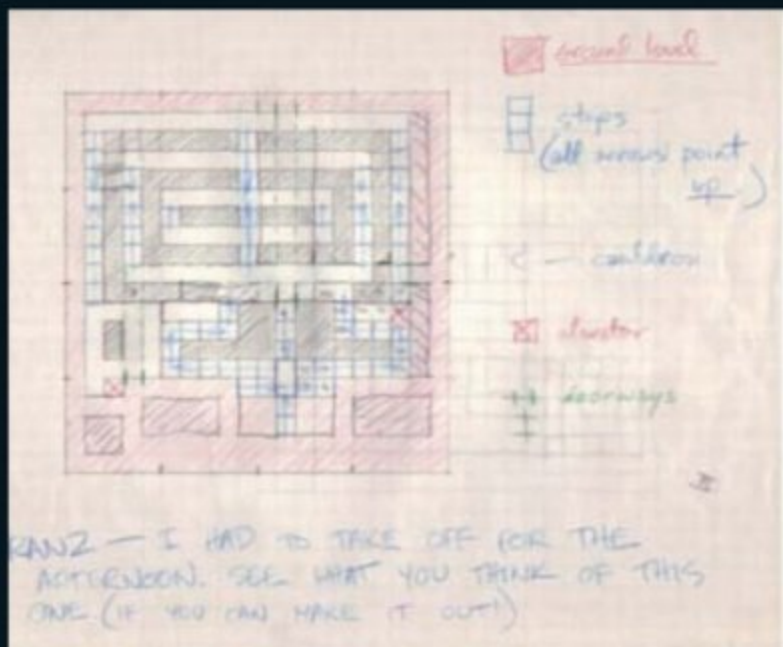 second level
steps
(all arrows point
up.)
< — cauldron
elevator
doorways
II
RANZ — I HAD TO TAKE OFF FOR THE
AFTERNOON. SEE WHAT YOU THINK OF THIS
ONE (IF YOU CAN MAKE IT OUT!)